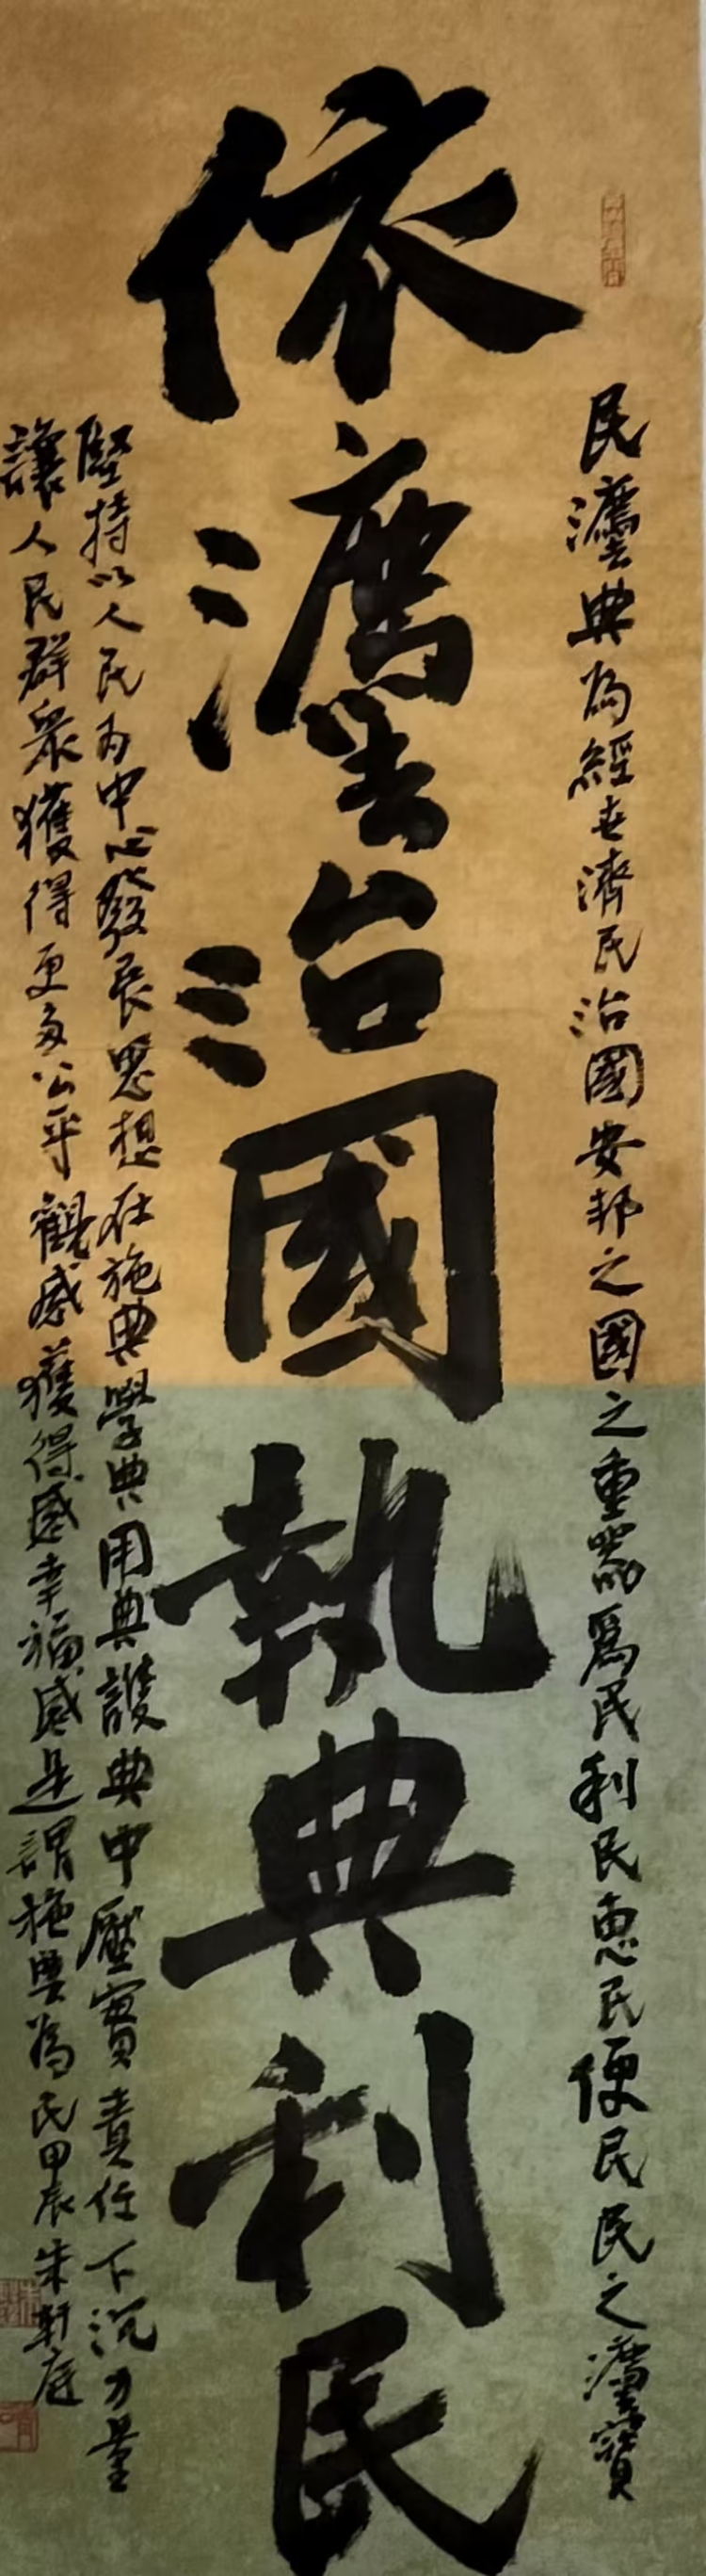 依灋治國執典利民
民灋典為經世濟民治國安邦之國之重器為民利民惠民便民民之灋寶
堅持以人民為中心發展思想在施典學典用典護典中壓實責任下沉力量
讓人民群眾獲得更多公平觀感獲得感幸福感是謂施典為民甲辰朱軒庭